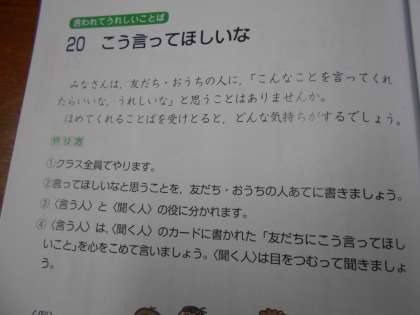 言われてうれしいことば
20 こう言ってほしいな
みなさんは，友だち・おうちの人に，「こんなことを言ってくれ
たらいいな，うれしいな」と思うことはありませんか。
ほめてくれることばを受けとると，どんな気持ちがするでしょう。
やり方
①クラス全員でやります。
②言ってほしいなと思うことを，友だち・おうちの人あてに書きましょう。
③〈言う人〉と〈聞く人〉の役に分かれます。
④〈言う人〉は，〈聞く人〉のカードに書かれた「友だちにこう言ってほし
いこと」を心をこめて言いましょう。〈聞く人〉は目をつむって聞きましょ
う。